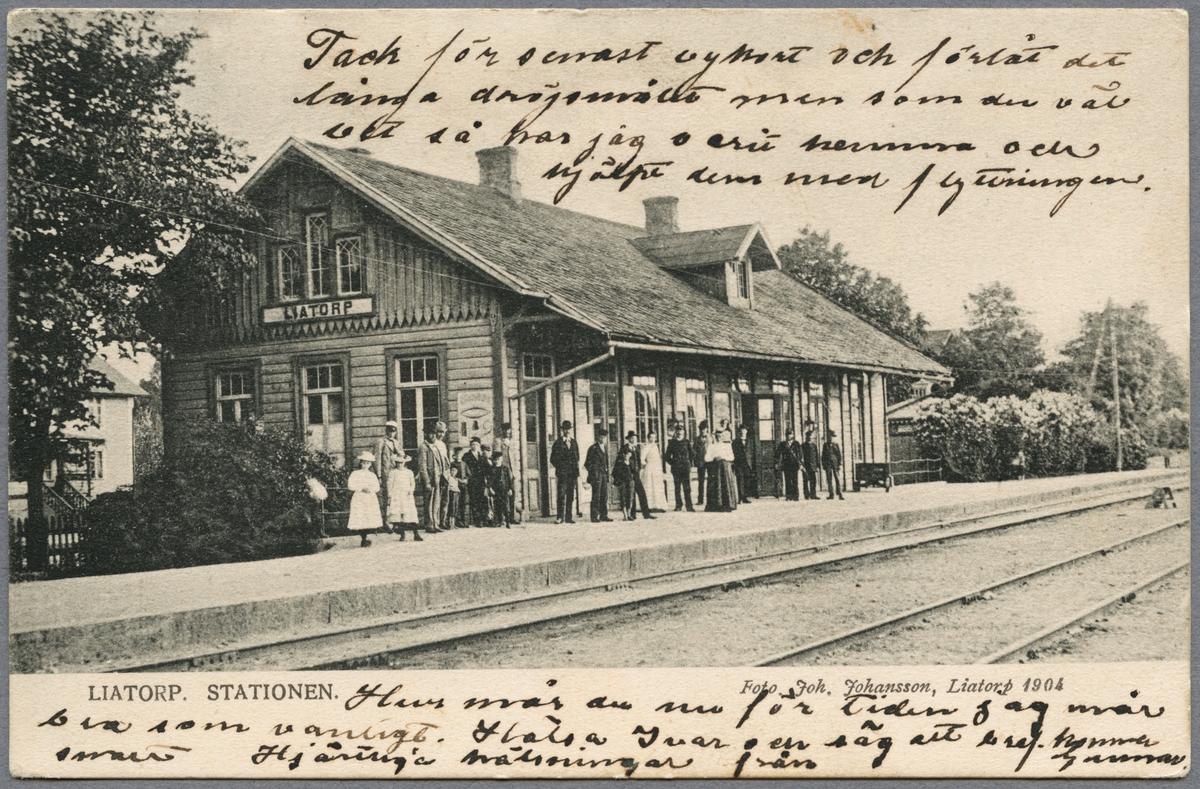 Tack för senast vykort och förlåt det
långa dröjsmålet men som du väl
vet så har jag varit hemma och
hjälpt dem med flyttningen.
LIATORP
LIATORP. STATIONEN.
Foto. Joh. Johansson, Liatorp 1904
Hur mår du nu för tiden jag mår
bra som vanligt. Hälsa Ivar och säg att bref. kommer
snart Hjärtliga hälsningar från Gunnar.